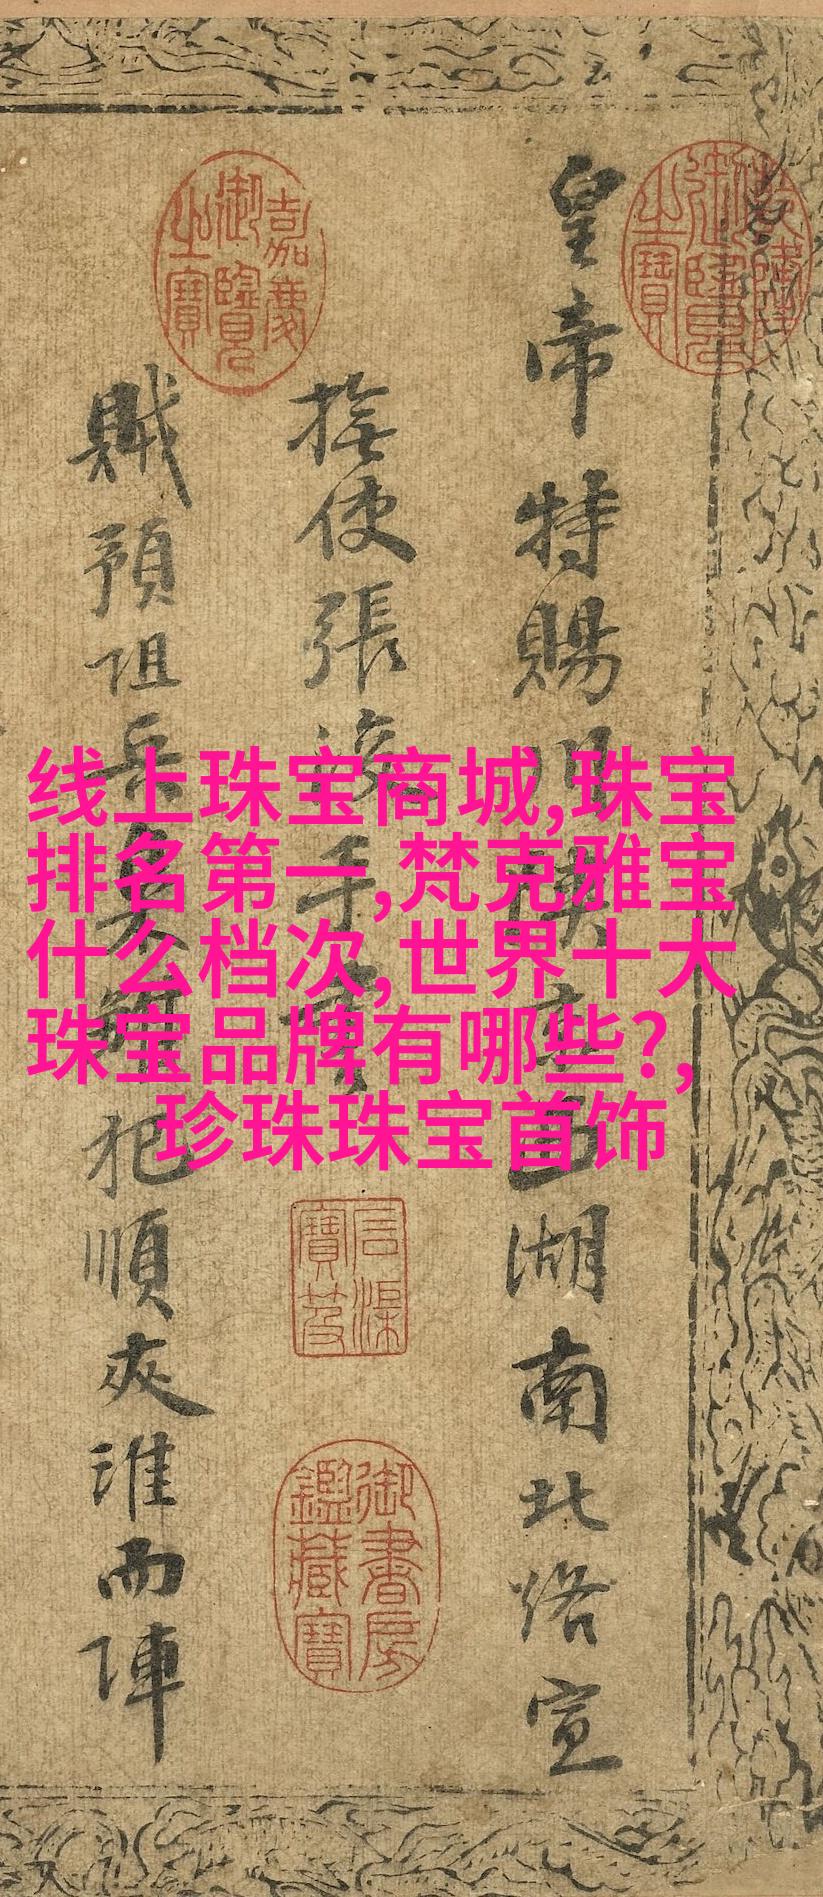 皇帝特賜川陝
湖南北烙宣
撫使張浚手
賊預阻兵
犯順夾淮而陣
嘉慶
御覽
之寶
御書房
鑑藏寶
线上珠宝商城,珠宝
排名第一,梵克雅宝
什么档次,世界十大
珠宝品牌有哪些?,
珍珠珠宝首饰